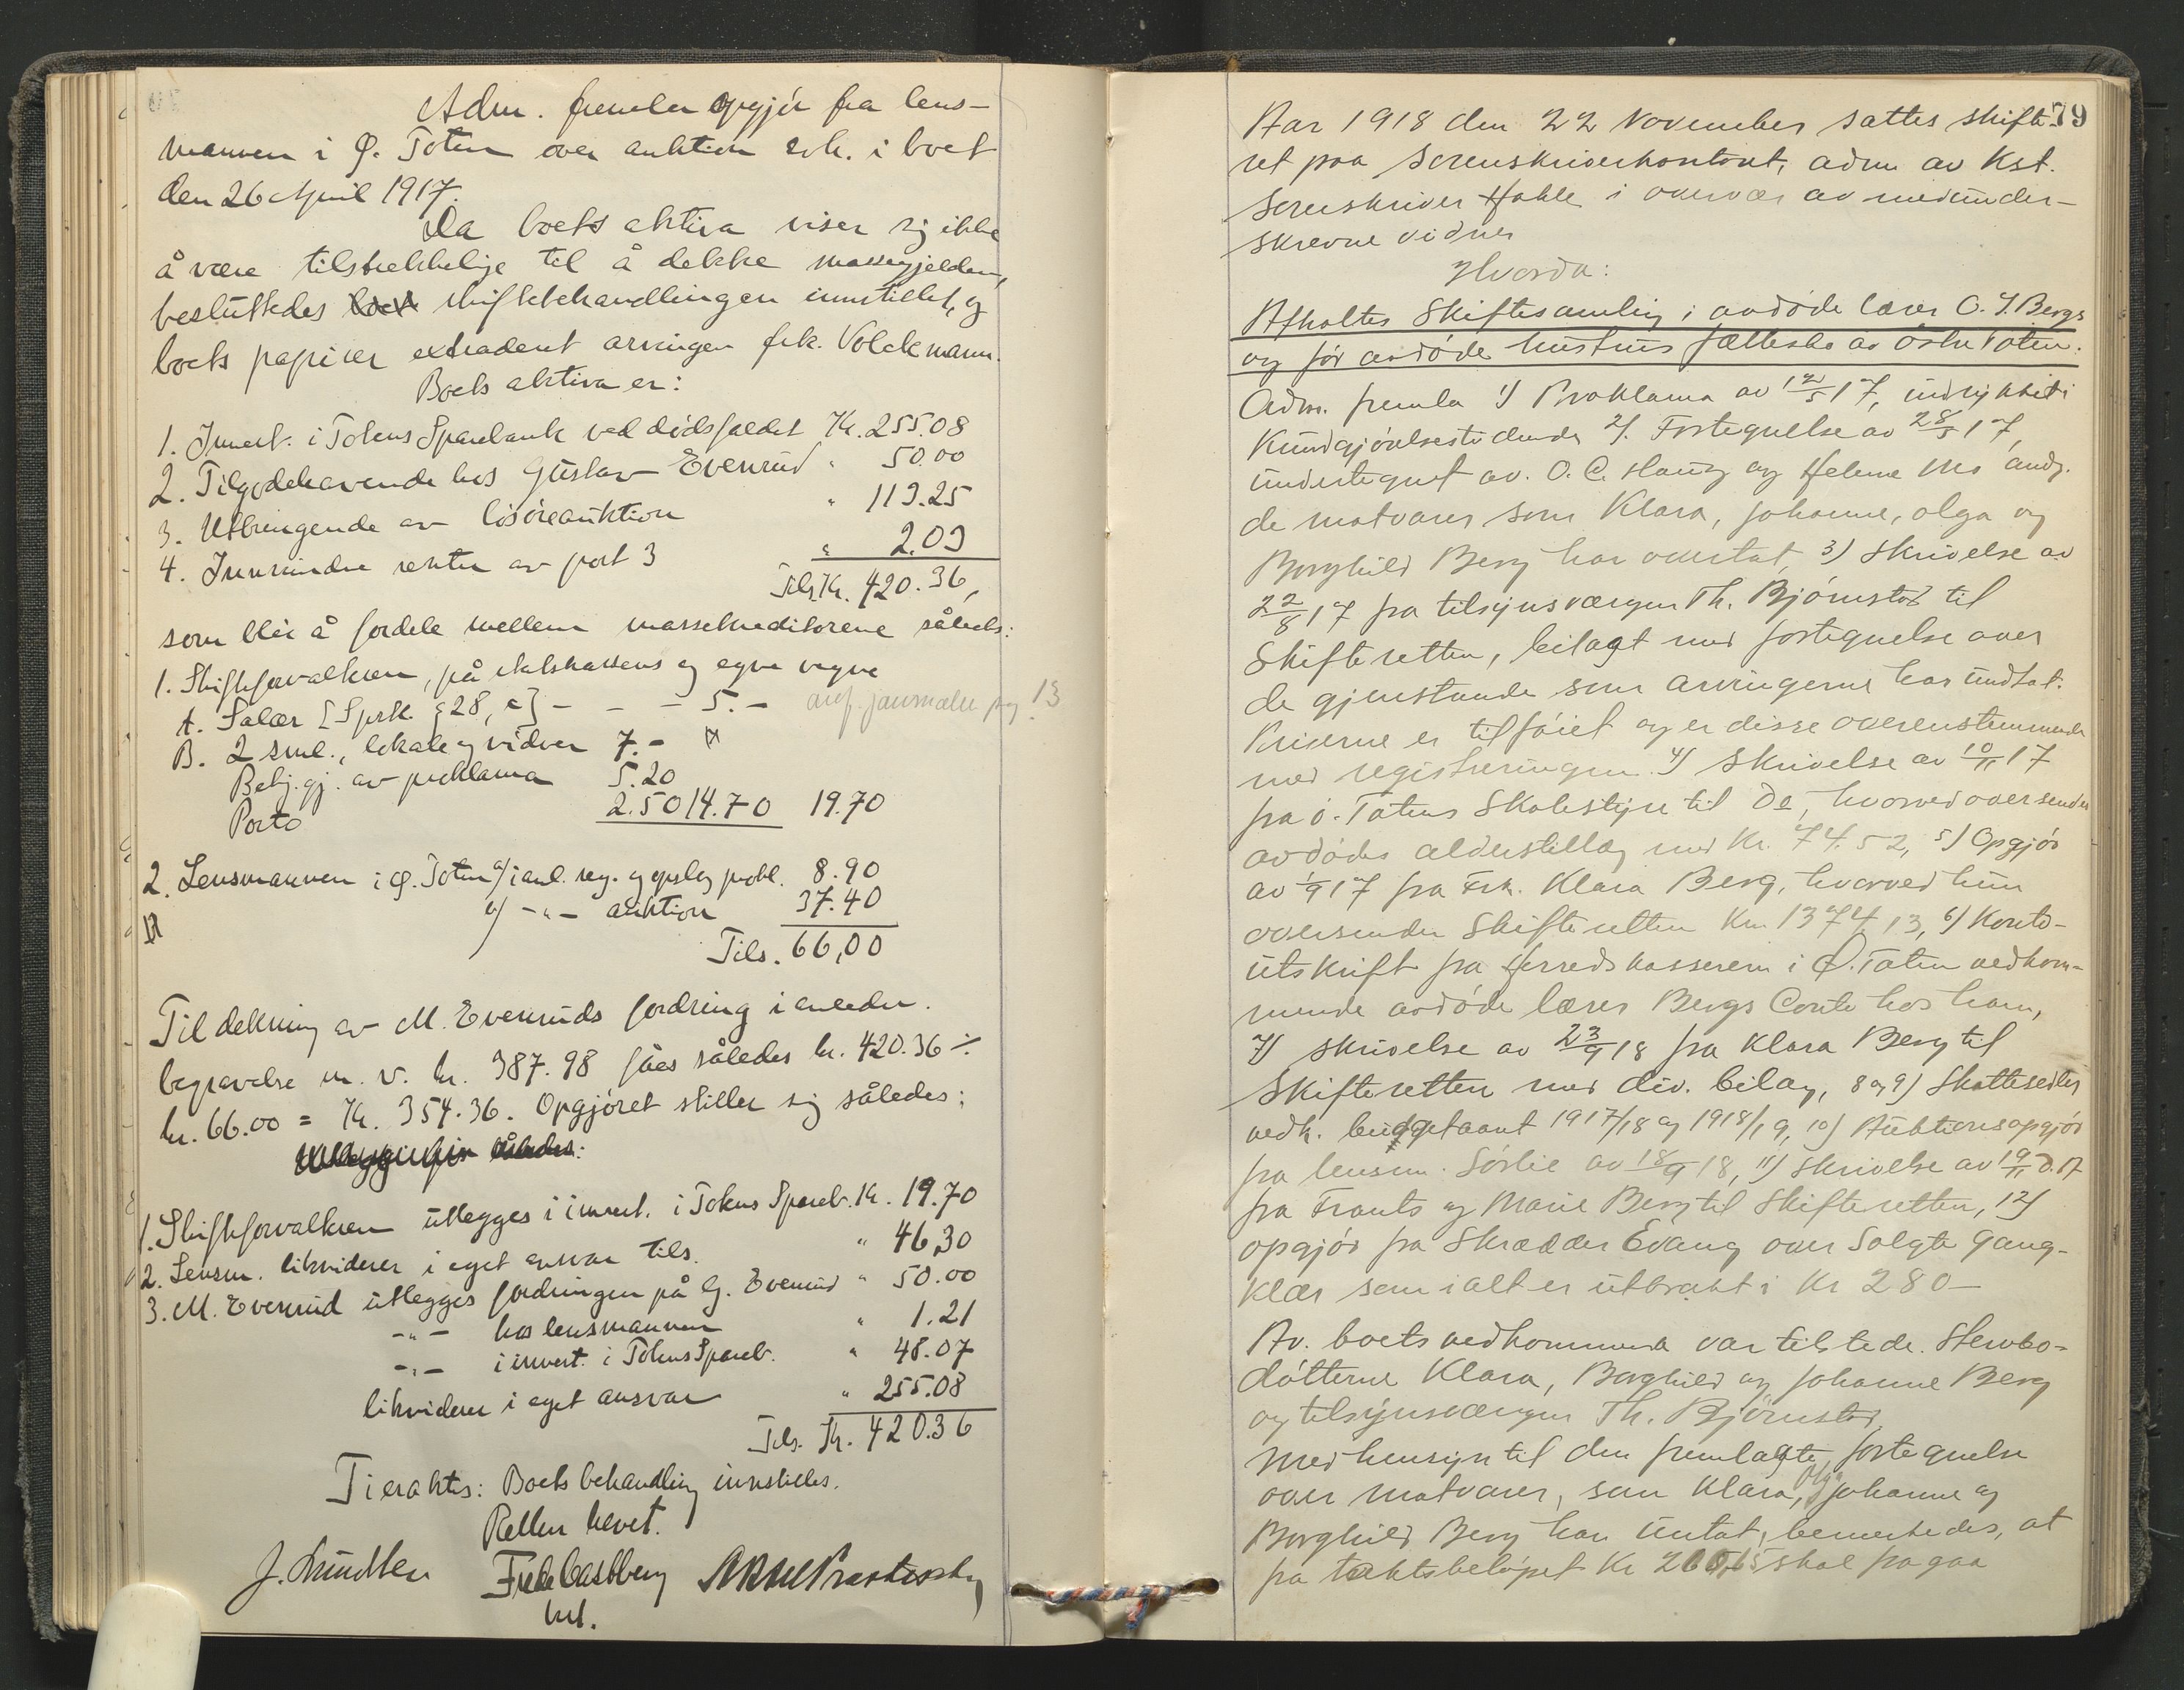 Adm. fremla opgjör fra lens-
mannen i Ø. Toten over auktion avh. i boet
den 26 April 1917.
Da boets aktiva viser sig ikke
å være tilstrekkelige til å dekke massegjelden,
besluttedes skiftebehandlingen innstillet, og
boets papirer extradert arvingen frk. Volckmann.
Boets aktiva er:
1. Innest. i Totens Sparebank ved dödsfaldet Kr. 255.08
2. Tilgodehavende hos Gustav Evenrud " 50.00
3. Utbringende av lösöreauktion " 113.25
4. Innvundne renter av post 3 " 2.03
Tils. Kr. 420.36,
som blir å fordele mellem massekreditorene således:
1. Skifteforvalteren, på statskassens og egne vegne
A. Salær [Sprtl. § 28, c] - - - 5.- anf. journalen pag 13
B. 2 sml., lokale og vidner 7.-
Bekj.gj. av proklama 5.20
Porto 2.50 14.70 19.70
2. Lensmannen i Ø. Toten a/ i anl. reg. og opslag prokl. 8.90
b/ -"- auktion 37.40
Tils. 66,00
Til dekning av M. Evenruds fordring i anledn.
begravelse m. v. kr. 387.98 fåes således kr. 420.36 ÷
kr. 66.00 = Kr. 354.36. Opgjöret stiller sig således:
1. Skifteforvalteren utlegges i innest. i Totens Spareb. Kr. 19.70
2. Lensm. likviderer i eget ansvar tils. " 46,30
3. M. Evenrud utlegges fordringen på G. Evenrud " 50.00
-"- hos lensmannen " 1.21
-"- i innest. i Totens Spareb. " 48.07
likviderer i eget ansvar " 255.08
Tils. Kr. 420.36
Ti eraktes: Boets behandling innstilles.
Retten hevet.
79
Aar 1918 den 22 November sattes skifte-
ret paa Sorenskriverkontoret, adm av Kst.
Sorenskriver Hakle i overvær av medunder-
skrevne vidner
Hvorda:
Afholtes Skiftesamling i avdöde lærer O. J. Bergs
og för avdöde hustrus fællesbo av östre Toten.
Adm. fremla 1) Proklama av 12/5 17, indrykket i
Kundgjörelsestidende 2). Fortegnelse av 28/5 17,
undertegnet av. O. C. Haug og Helene Mo angj.
de matvarer som Klara, Johanne, olga og
Borghild Berg har overtat, 3) Skrivelse av
22/8 17 fra tilsynsværgen Th. Bjørnstad til
Skifteretten, bilagt med fortegnelse over
de gjenstande som arvingerne har undtat.
Priserne er tilföiet og er disse overenstemmende
med registreringen. 4) Skrivelse av 10/11 17
fra ö. Totens Skolestyre til Do, hvorved oversendes
avdödes alderstillæg med Kr. 74.52, 5) Opgjör
av 1/9 17 fra Frk. Klara Berg, hvorved hun
oversender Skifteretten Kr. 1374,13, 6) Konto-
utskrift fra Herredskassereren i Ø. Toten vedkom-
mende avdöde lærer Bergs Conto hos ham,
7) Skrivelse av 23/9 18 fra Klara Berg til
Skifteretten med div. bilag, 8 og 9) Skattesedler
vedk. budgetaaret 1917/18 og 1918/19, 10) Auktionsopgjör
fra lensm. Sörlie av 18/9 18, 11) Skrivelse av 19/11 d. 17
fra Frants og Marie Berg til Skifteretten, 12)
opgjör fra Skrædder Evang over Solgte gang-
klær som ialt er utbrakt i Kr 280 —
Av. boets vedkommende var tilstede. Stervbo-
döttrene Klara, Borghild og Johanne Berg
og tilsynsværgen Th. Bjørnstad.
Med hensyn til den fremlagte fortegnelse
over matvarer, som Klara, Olga Johanne og
Borghild Berg har untat, bemerkedes, at
fra takstbelöpet Kr skal fragaa